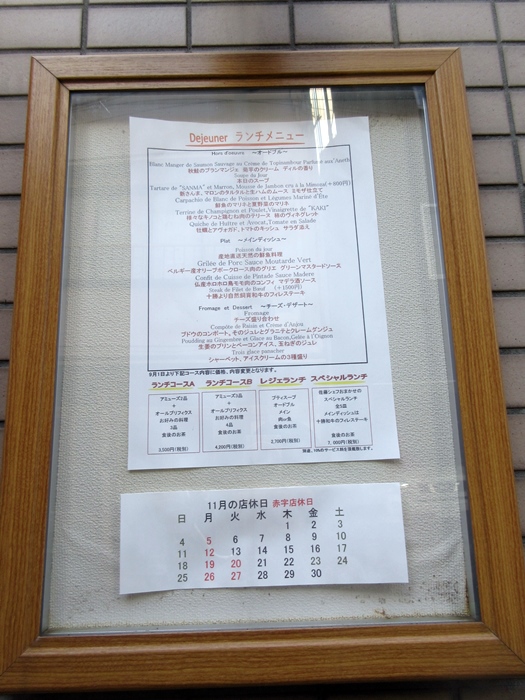 Dejeuner ランチメニュー
Hors d'oeuvre ～オードブル～
Blanc Manger de Saumon Sauvage au Creme de Topinambour Parfumé aux Aneth
秋鮭のブランマンジェ 菊芋のクリーム ディルの香り
Soupe du Jour
本日のスープ
Tartare de "SANMA" et Marron, Mousse de Jambon cru à la Mimosa(+600円)
新さんま、マロンのタルタルと生ハムのムース ミモザ仕立て
Carpachio de Blanc de Poisson et Légumes Mariné d'Ete
鮮魚のマリネと夏野菜のマリネ
Terrine de Champignon et Poulet,Vinaigrette de "KAKI"
様々なキノコと鶏むね肉のテリーヌ 柿のヴィネグレット
Quiche de Huître et Avocat,Tomato en Salade
牡蠣とアヴォガド、トマトのキッシュ サラダ添え
Plat ～メインディッシュ～
Poisson du jour
産地直送天然の鮮魚料理
Grilée de Porc Sauce Moutarde Vert
ベルギー産オリーブポークロース肉のグリエ グリーンマスタードソース
Confit de Cuisse de Pintade Sauce Madere
仏産ホロホロ鳥モモ肉のコンフィ マデラ酒ソース
Steak de Filet de Bœuf (+1500円)
十勝より自然飼育和牛のフィレステーキ
Fromage et Dessert ～チーズ・デザート～
Fromage
チーズ盛り合わせ
Compôte de Raisin et Crème d'Anjou
ブドウのコンポート、そのジュレとグラニテとクレームダンジュ
Poudding au Gingembre et Glace au Bacon,Gelée à l'Oignon
生姜のプリンとベーコンアイス、玉ねぎのジュレ
Trois glace panacher
シャーベット、アイスクリームの3種盛り
9月1日より下記コース内容に価格、内容変更となります。
ランチコースA ランチコースB レジェランチ スペシャルランチ
アミューズ2品
+
オールプリフィクス
お好みの料理
3品
食後のお茶
3,500円(税別)
アミューズ3品
+
オールプリフィクス
お好みの料理
4品
食後のお茶
4,800円(税別)
プティスープ
オードブル
メイン
肉or魚
食後のお茶
2,700円(税別)
佐藤シェフおまかせの
スペシャルランチ
全5皿
メインディッシュは
十勝和牛のフィレステーキ
食後のお茶
7,000円(税別)
別途、10%のサービス料を頂戴致します。
11月の店休日 赤字店休日
日 月 火 水 木 金 土
1 2 3
4 5 6 7 8 9 10
11 12 13 14 15 16 17
18 19 20 21 22 23 24
25 26 27 28 29 30